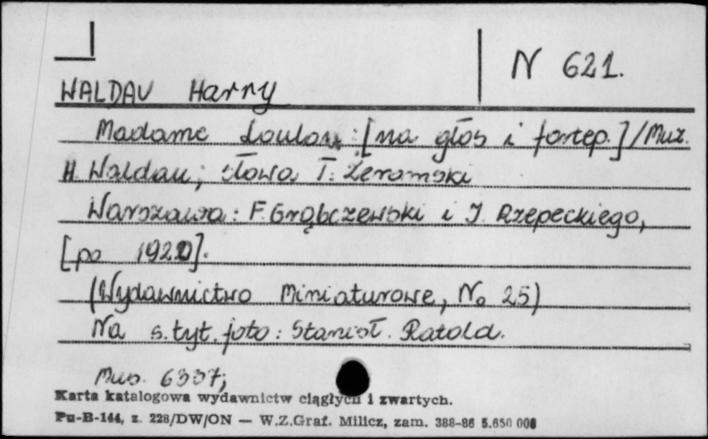 N 621.
WALDAU Harry
Madame Loulou : [na głos i fortep.] / Muz.
H. Waldau ; słowa T. Żeromski
Warszawa : F. Grąbczewski i J. Rzepeckiego,
[po 1920].
(Wydawnictwo Miniaturowe, No 25)
Na s. tyt. foto : Stanisł. Ratold.
Mus. 6337;
Karta katalogowa wydawnictw ciągłych i zwartych.
Pu-B-144, z. 228/DW/ON — W.Z.Graf. Milicz, zam. 388-86 5.650 000